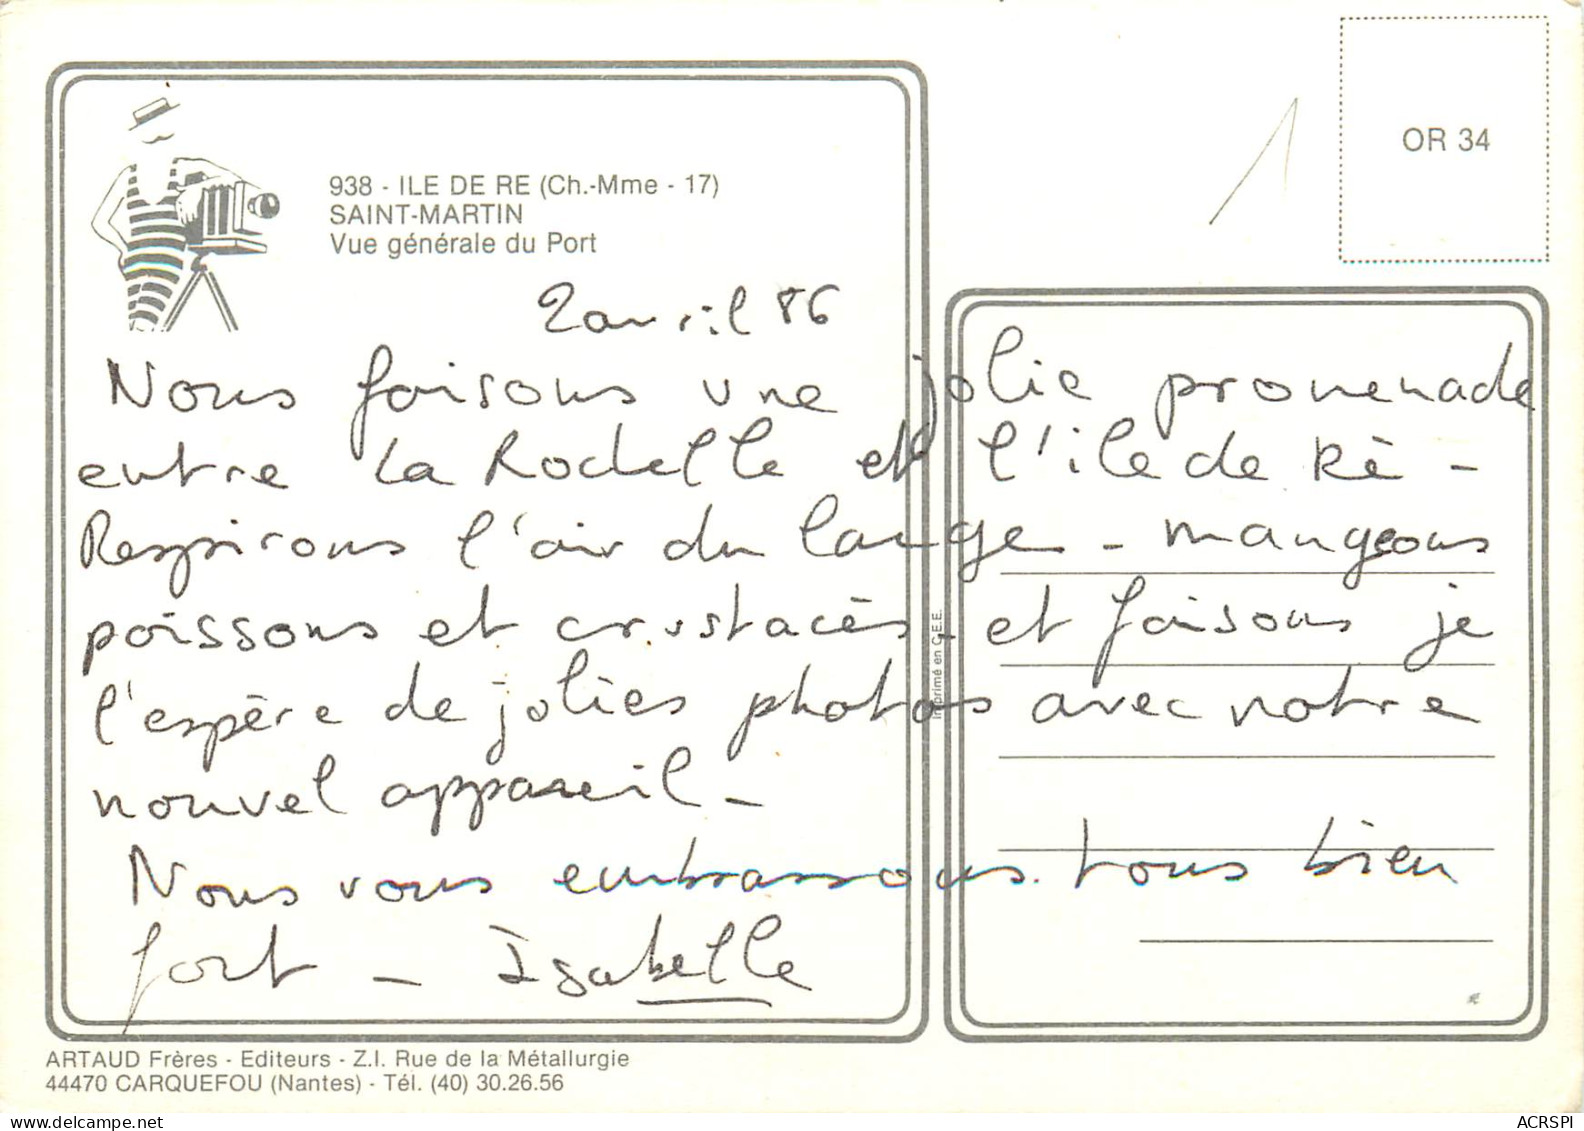 OR 34
1
938 - ILE DE RE (Ch.-Mme - 17)
SAINT-MARTIN
Vue générale du Port
2 avril 86
Nous faisons une jolie promenade
entre La Rochelle et l'ile de Ré -
Respirons l'air du large - mangeons
poissons et crustacés - et faisons je
l'espère de jolies photos avec notre
nouvel appareil -
Nous vous embrassons tous bien
fort - Isabelle
Imprimé en C.E.E.
ARTAUD Frères - Editeurs - Z.I. Rue de la Métallurgie
44470 CARQUEFOU (Nantes) - Tél. (40) 30.26.56
ACRSPI